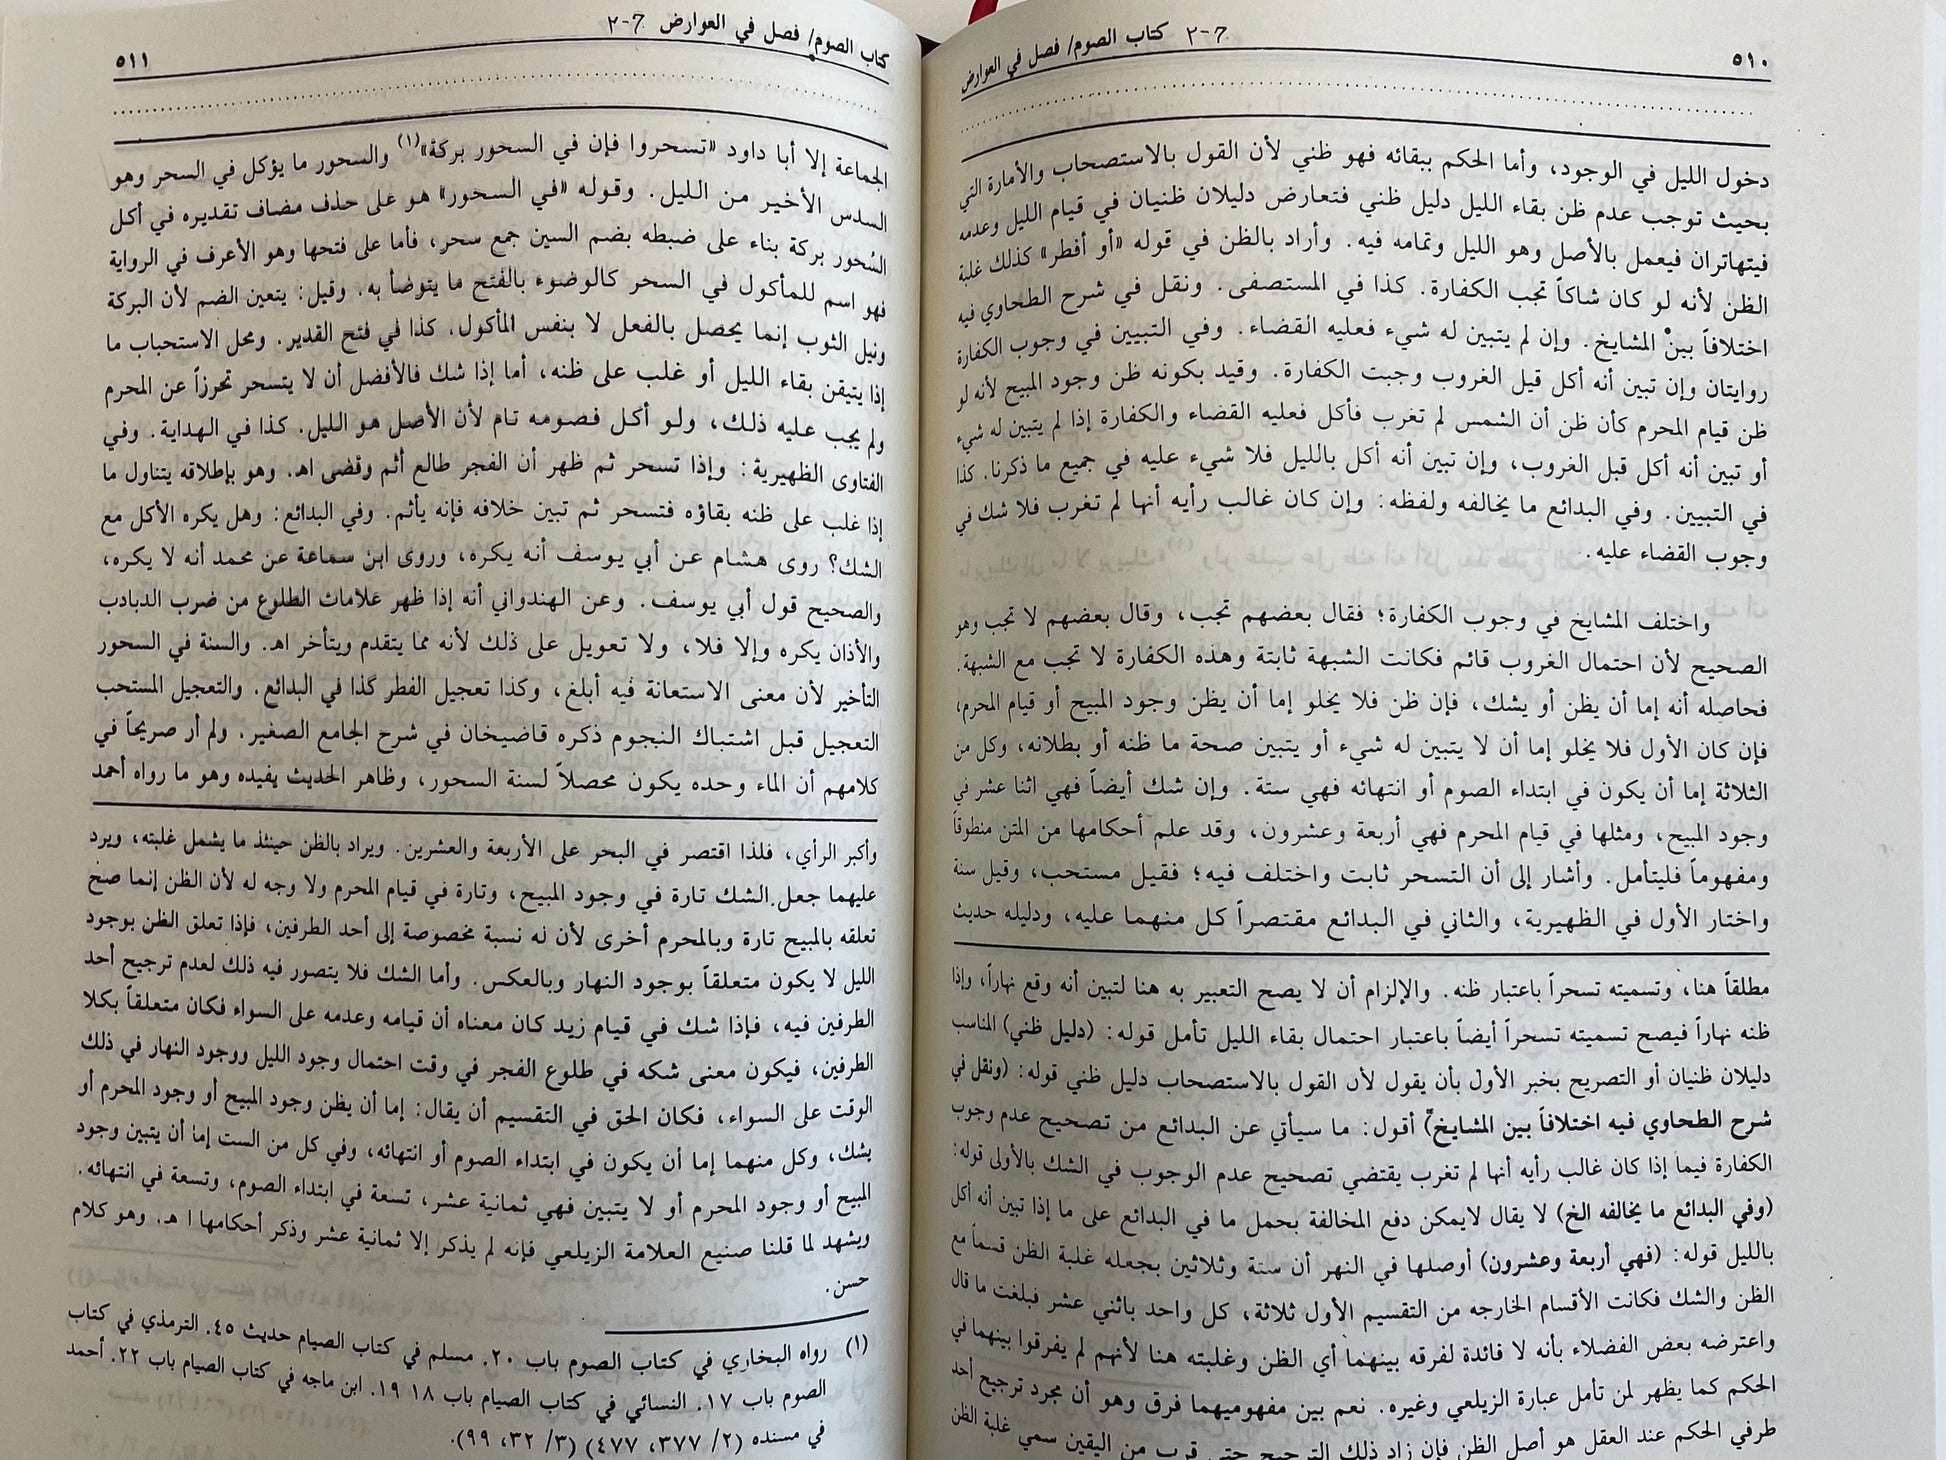 ٥١٠
٢-ج كتاب الصوم/ فصل في العوارض
دخول الليل في الوجود، وأما الحكم ببقائه فهو ظني لأن القول بالاستصحاب والأمارة التي
بحيث توجب عدم ظن بقاء الليل دليل ظني فتعارض دليلان ظنيان في قيام الليل وعدمه
فيتهاتران فيعمل بالأصل وهو الليل وتمامه فيه. وأراد بالظن في قوله «أو أفطر» كذلك غلبة
الظن لأنه لو كان شاكاً تجب الكفارة. كذا في المستصفى. ونقل في شرح الطحاوي فيه
اختلافاً بين المشايخ. وإن لم يتبين له شيء فعليه القضاء. وفي التبيين في وجوب الكفارة
روايتان وإن تبين أنه أكل قبل الغروب وجبت الكفارة. وقيد بكونه ظن وجود المبيح لأنه لو
ظن قيام المحرم كأن ظن أن الشمس لم تغرب فأكل فعليه القضاء والكفارة إذا لم يتبين له شيء
أو تبين أنه أكل قبل الغروب، وإن تبين أنه أكل بالليل فلا شيء عليه في جميع ما ذكرنا. كذا
في التبيين. وفي البدائع ما يخالفه ولفظه: وإن كان غالب رأيه أنها لم تغرب فلا شك في
وجوب القضاء عليه.
واختلف المشايخ في وجوب الكفارة؛ فقال بعضهم تجب، وقال بعضهم لا تجب وهو
الصحيح لأن احتمال الغروب قائم فكانت الشبهة ثابتة وهذه الكفارة لا تجب مع الشبهة.
فحاصله أنه إما أن يظن أو يشك، فإن ظن فلا يخلو إما أن يظن وجود المبيح أو قيام المحرم،
فإن كان الأول فلا يخلو إما أن لا يتبين له شيء أو يتبين صحة ما ظنه أو بطلانه، وكل من
الثلاثة إما أن يكون في ابتداء الصوم أو انتهائه فهي ستة. وإن شك أيضاً فهي اثنا عشر في
وجود المبيح، ومثلها في قيام المحرم فهي أربعة وعشرون، وقد علم أحكامها من المتن منطوقاً
ومفهوماً فليتأمل. وأشار إلى أن التسحر ثابت واختلف فيه؛ فقيل مستحب، وقيل سنة
واختار الأول في الظهيرية، والثاني في البدائع مقتصراً كل منهما عليه، ودليله حديث
مطلقاً هنا، وتسميته تسحراً باعتبار ظنه. والإلزام أن لا يصح التعبير به هنا لتبين أنه وقع نهاراً، وإذا
ظنه نهاراً فيصح تسميته تسحراً أيضاً باعتبار احتمال بقاء الليل تأمل قوله: (دليل ظني) المناسب
دليلان ظنيان أو التصريح بخبر الأول بأن يقول لأن القول بالاستصحاب دليل ظني قوله: (ونقل في
شرح الطحاوي فيه اختلافاً بين المشايخ) أقول: ما سيأتي عن البدائع من تصحيح عدم وجوب
الكفارة فيما إذا كان غالب رأيه أنها لم تغرب يقتضي تصحيح عدم الوجوب في الشك بالأولى قوله:
(وفي البدائع ما يخالفه الخ) لا يقال لايمكن دفع المخالفة بحمل ما في البدائع على ما إذا تبين أنه أكل
بالليل قوله: (فهي أربعة وعشرون) أوصلها في النهر أن ستة وثلاثين بجعله غلبة الظن قسماً مع
الظن والشك فكانت الأقسام الخارجه من التقسيم الأول ثلاثة، كل واحد باثني عشر فبلغت ما قال
واعترضه بعض الفضلاء بأنه لا فائدة لفرقه بينهما أي الظن وغلبته هنا لأنهم لم يفرقوا بينهما في
الحكم كما يظهر لمن تأمل عبارة الزيلعي وغيره. نعم بين مفهوميهما فرق وهو أن مجرد ترجيح أحد
طرفي الحكم عند العقل هو أصل الظن فإن زاد ذلك الترجيح حتى قرب من اليقين سمي غلبة الظن
كتاب الصوم/ فصل في العوارض ٢-ج
٥١١
الجماعة إلا أبا داود «تسحروا فإن في السحور بركة»(١) والسحور ما يؤكل في السحر وهو
السدس الأخير من الليل. وقوله «في السحور» هو على حذف مضاف تقديره في أكل
السُحور بركة بناء على ضبطه بضم السين جمع سحر، فأما على فتحها وهو الأعرف في الرواية
فهو اسم للمأكول في السحر كالوضوء بالفتح ما يتوضأ به. وقيل: يتعين الضم لأن البركة
ونيل الثوب إنما يحصل بالفعل لا بنفس المأكول. كذا في فتح القدير. ومحل الاستحباب ما
إذا يتيقن بقاء الليل أو غلب على ظنه، أما إذا شك فالأفضل أن لا يتسحر تحرزاً عن المحرم
ولم يجب عليه ذلك، ولو أكل فصومه تام لأن الأصل هو الليل. كذا في الهداية. وفي
الفتاوى الظهيرية: وإذا تسحر ثم ظهر أن الفجر طالع أثم وقضى اهـ. وهو بإطلاقه يتناول ما
إذا غلب على ظنه بقاؤه فتسحر ثم تبين خلافه فإنه يأثم. وفي البدائع: وهل يكره الأكل مع
الشك؟ روى هشام عن أبي يوسف أنه يكره، وروى ابن سماعة عن محمد أنه لا يكره،
والصحيح قول أبي يوسف. وعن الهندواني أنه إذا ظهر علامات الطلوع من ضرب الدبادب
والأذان يكره وإلا فلا، ولا تعويل على ذلك لأنه مما يتقدم ويتأخر اهـ. والسنة في السحور
التأخير لأن معنى الاستعانة فيه أبلغ، وكذا تعجيل الفطر كذا في البدائع. والتعجيل المستحب
التعجيل قبل اشتباك النجوم ذكره قاضيخان في شرح الجامع الصغير. ولم أر صريحاً في
كلامهم أن الماء وحده يكون محصلاً لسنة السحور، وظاهر الحديث يفيده وهو ما رواه أحمد
وأكبر الرأي، فلذا اقتصر في البحر على الأربعة والعشرين. ويراد بالظن حينئذ ما يشمل غلبته، ويرد
عليهما جعل الشك تارة في وجود المبيح، وتارة في قيام المحرم ولا وجه له لأن الظن إنما صح
تعلقه بالمبيح تارة وبالمحرم أخرى لأن له نسبة مخصوصة إلى أحد الطرفين، فإذا تعلق الظن بوجود
الليل لا يكون متعلقاً بوجود النهار وبالعكس. وأما الشك فلا يتصور فيه ذلك لعدم ترجيح أحد
الطرفين فيه، فإذا شك في قيام زيد كان معناه أن قيامه وعدمه على السواء فكان متعلقاً بكلا
الطرفين، فيكون معنى شكه في طلوع الفجر في وقت احتمال وجود الليل ووجود النهار في ذلك
الوقت على السواء، فكان الحق في التقسيم أن يقال: إما أن يظن وجود المبيح أو وجود المحرم أو
يشك، وكل منهما إما أن يكون في ابتداء الصوم أو انتهائه، وفي كل من الست إما أن يتبين وجود
المبيح أو وجود المحرم أو لا يتبين فهي ثمانية عشر، تسعة في ابتداء الصوم، وتسعة في انتهائه.
ويشهد لما قلنا صنيع العلامة الزيلعي فإنه لم يذكر إلا ثمانية عشر وذكر أحكامها ا هـ. وهو كلام
حسن.
(١) رواه البخاري في كتاب الصوم باب ٢٠. مسلم في كتاب الصيام حديث ٤٥. الترمذي في كتاب
الصوم باب ١٧. النسائي في كتاب الصيام باب ١٨ ١٩. ابن ماجه في كتاب الصيام باب ٢٢. أحمد
في مسنده (٢/ ٣٧٧، ٤٧٧) (٣/ ٣٢، ٩٩).